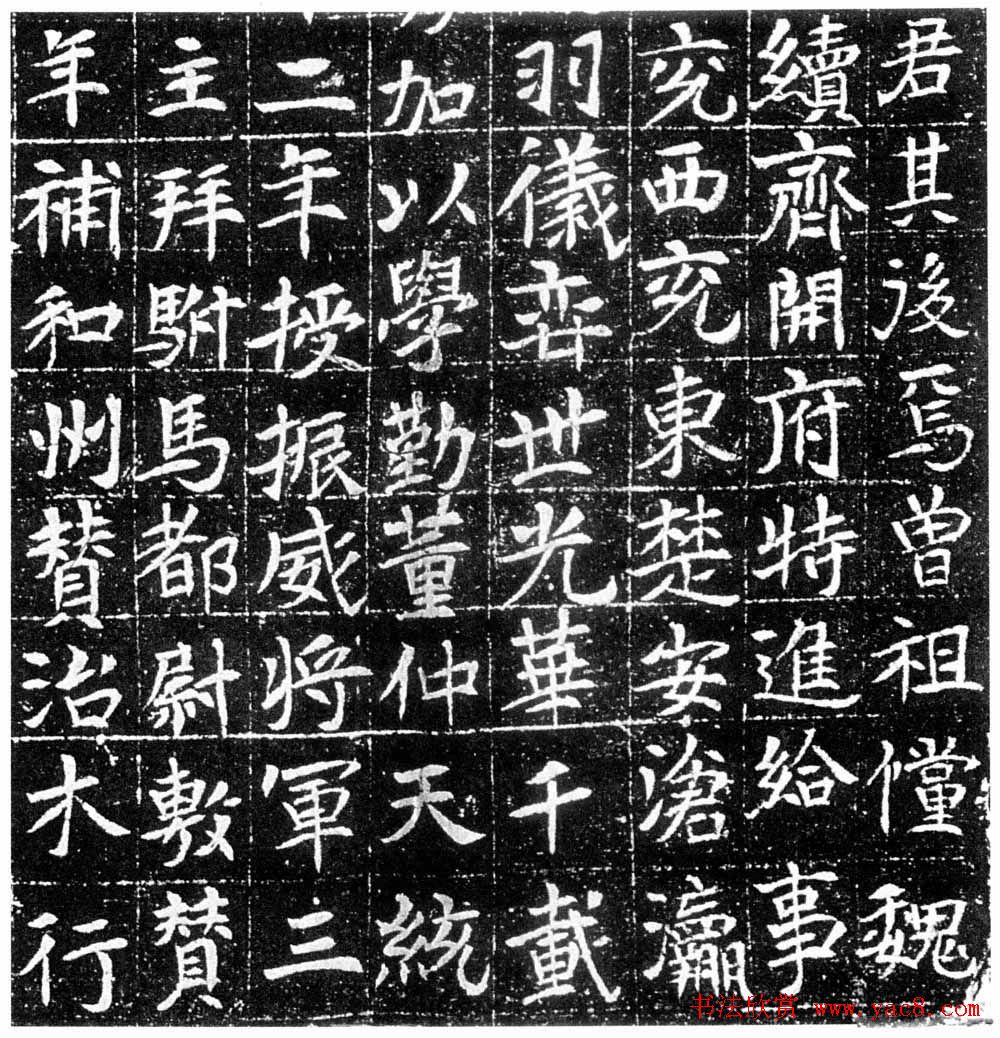 君其後焉曽祖儻魏
續齊開府特進給事
兖西兖東楚安滄瀛
羽儀弈世光華千載
加以學勤董仲天統
二年授振威將軍三
主拜駙馬都尉敷賛
年補和州賛治木行
书法欣赏 www.yac8.com